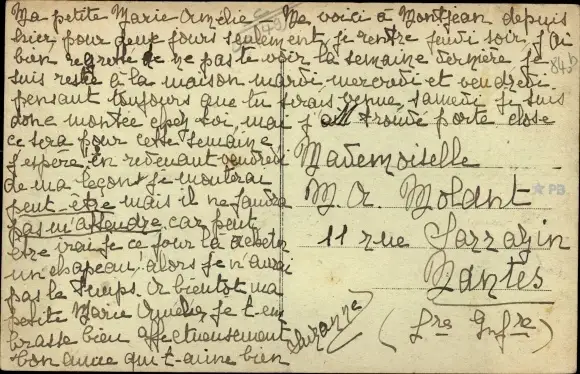 Ma petite Marie Amélie Me voici à Montjean depuis
hier, pour deux jours seulement, je rentre jeudi soir, j'ai
bien regretté de ne pas te voir la semaine dernière je
suis resté à la maison mardi, mercredi et vendredi
pensant toujours que tu serais venue, samedi je suis
donc montée chez toi, mai j'ai trouvé porte close
ce sera pour cette semaine
j'espère, en revenant vendredi
de ma leçon, je monterai
peut-être mais il ne faudra
pas m'attendre, car peut
être irai-je ce jour là acheter
un chapeau, alors je n'aurai
pas le temps. A bientôt ma
petite Marie Amélie, je t'em
brasse bien affectueusement
ton amie qui t'aime bien
Suzanne
Mademoiselle
M. A. Molant
11 rue Sarrazin
Nantes
(Lre Infre)
84b
PB